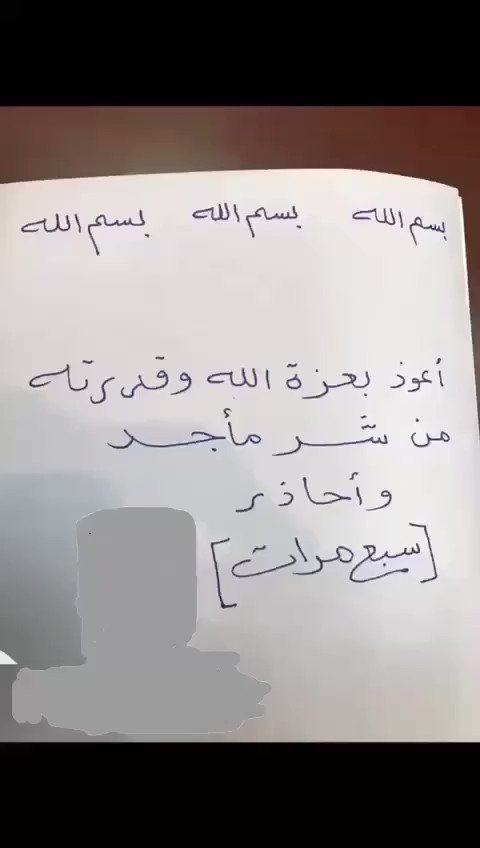 بسم الله بسم الله بسم الله
أعوذ بعزة الله وقدرته
من شر مأجد
وأحاذر
[سبع مرات]